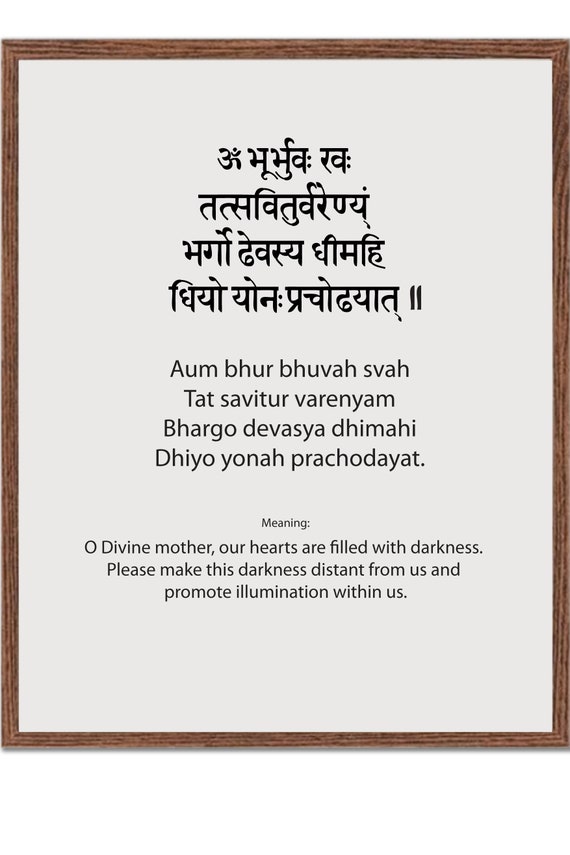 ॐ भूर्भुवः रवः
तत्सवितुर्वरेण्यं
भर्गो ढेवस्य धीमहि
धियो योनःप्रचोढयात् ॥
Aum bhur bhuvah svah
Tat savitur varenyam
Bhargo devasya dhimahi
Dhiyo yonah prachodayat.
Meaning:
O Divine mother, our hearts are filled with darkness.
Please make this darkness distant from us and
promote illumination within us.